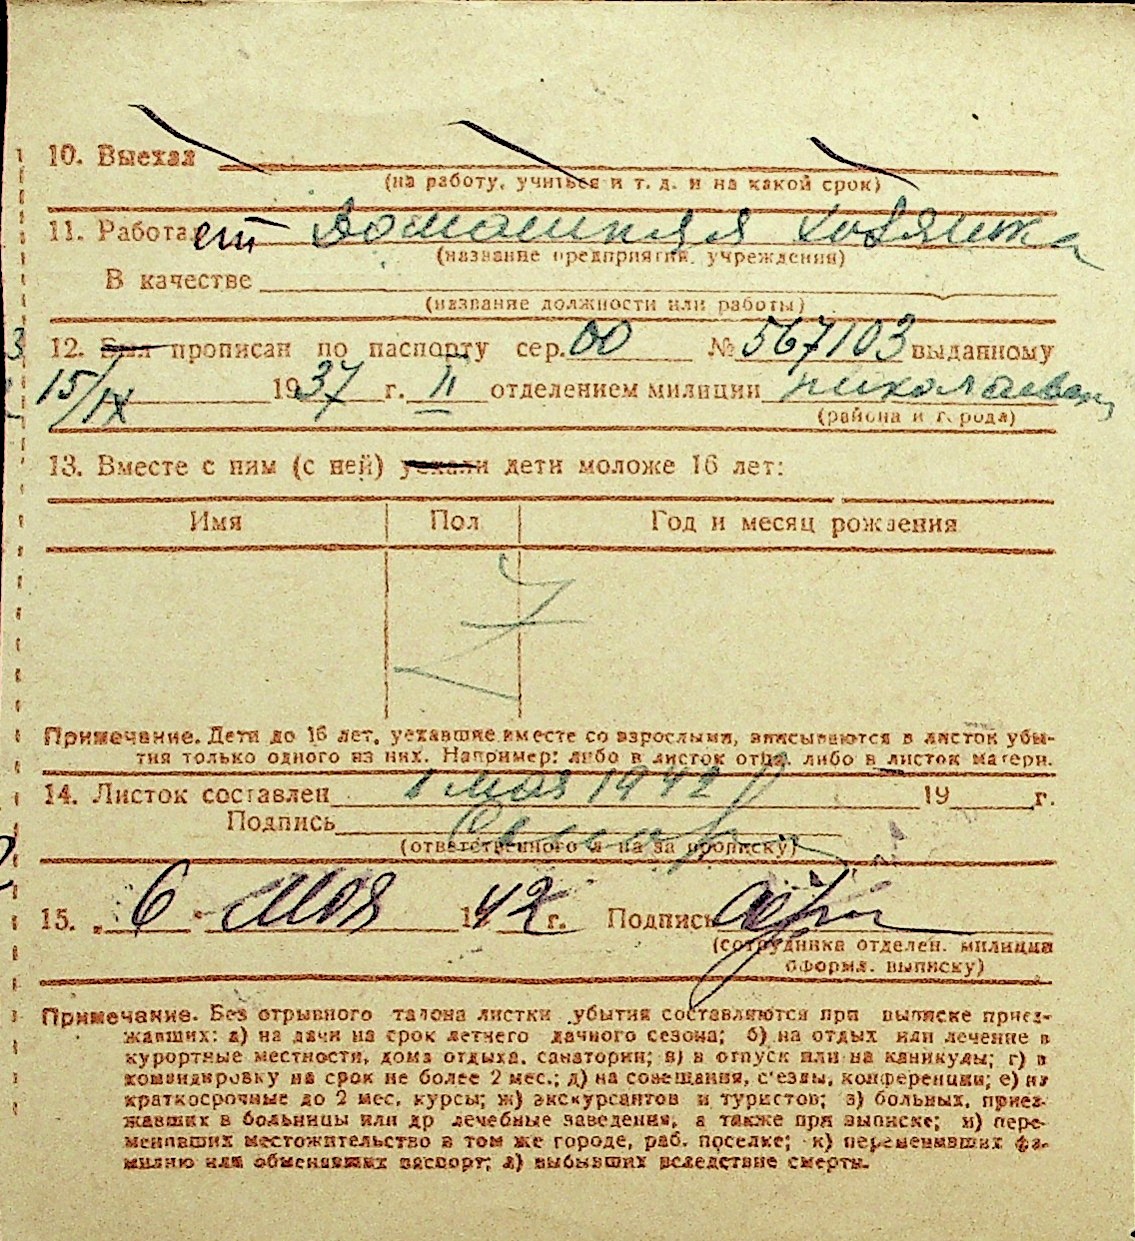 10. Выехал
(на работу, учиться и т. д. и на какой срок)
11. Работает домашняя хозяйка
(название предприятия, учреждения)
В качестве
(название должности или работы)
12. Был прописан по паспорту сер. 00 № 567103 выданному
15/IX 1937 г. II отделением милиции
(района и города)
13. Вместе с ним (с ней) уехали дети моложе 16 лет:
Имя Пол Год и месяц рождения
Z
Примечание. Дети до 16 лет, уехавшие вместе со взрослыми, вписываются в листок убы-
тия только одного из них. Например: либо в листок отца, либо в листок матери.
14. Листок составлен 1 мая 1942 19 г.
Подпись
(ответственного за прописку)
15. „ 6 " мая 1942 г. Подпись
(сотрудника отделен. милиции
оформл. выписку)
Примечание. Без отрывного талона листки убытия составляются при выписке приез-
жавших: а) на дачи на срок летнего дачного сезона; б) на отдых или лечение в
курортные местности, дома отдыха, санатории; в) в отпуск или на каникулы; г) в
командировку на срок не более 2 мес.; д) на совещания, с'езды, конференции; е) на
краткосрочные до 2 мес. курсы; ж) экскурсантов и туристов; з) больных, приез-
жавших в больницы или др лечебные заведения, а также при выписке; и) пере-
менивших местожительство в том же городе, раб. поселке; к) переменивших фа-
милию или обменявших паспорт; л) выбывших вследствие смерти.